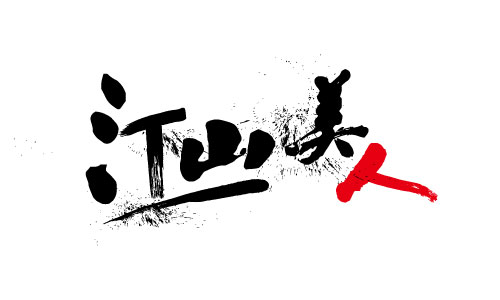 江山美人